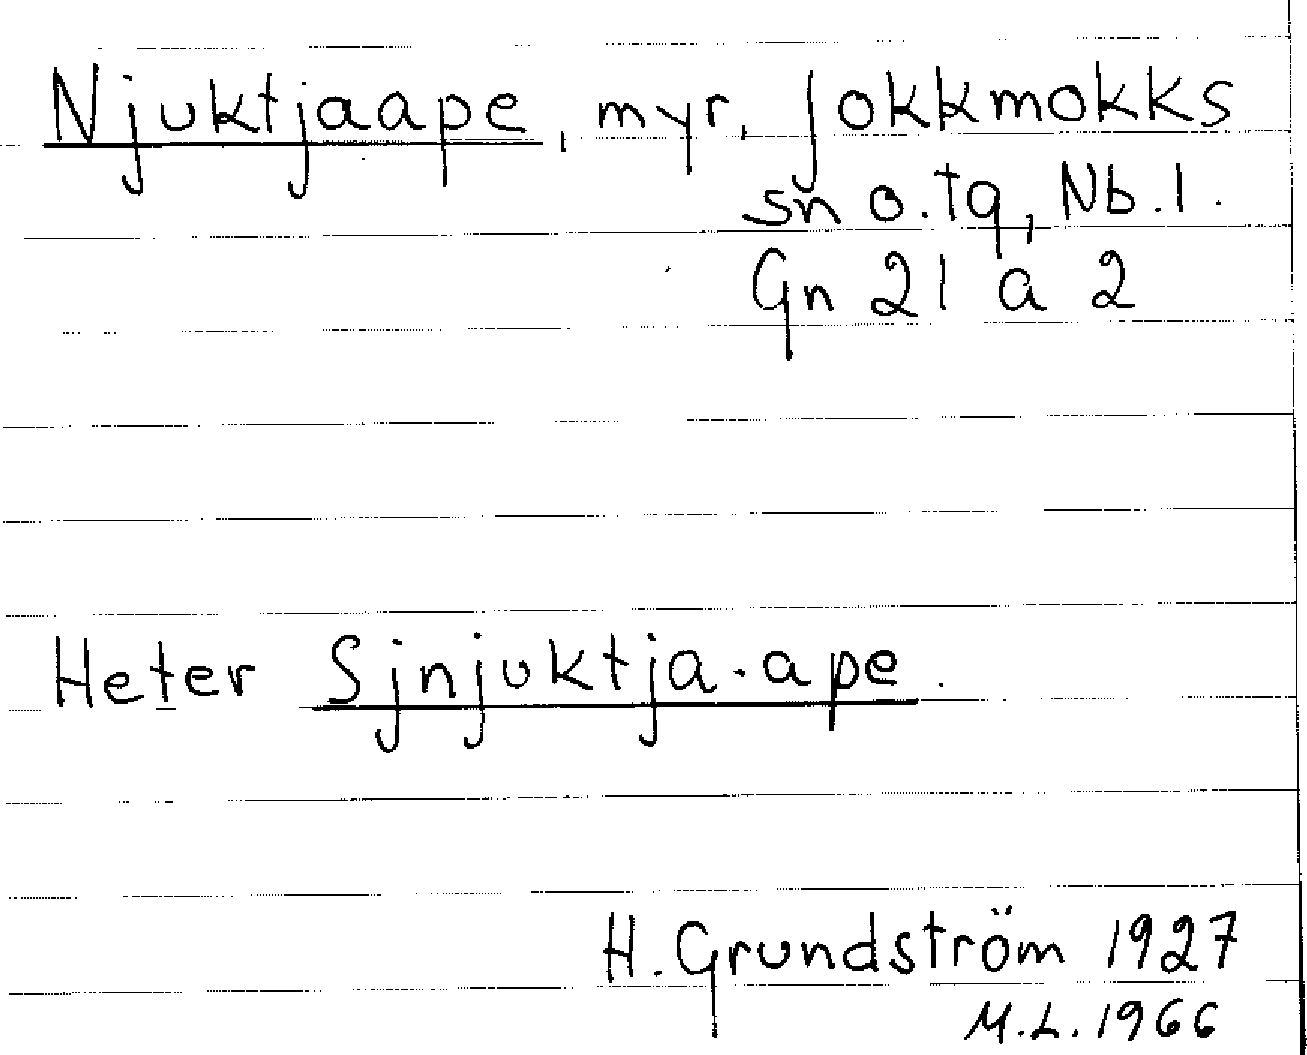 Njuktjaape, myr, Jokkmokks
sn o. tg, Nb. l.
Gn 21 a 2
Heter Sjnjuktja-ape.
H. Grundström 1927
M.L. 1966